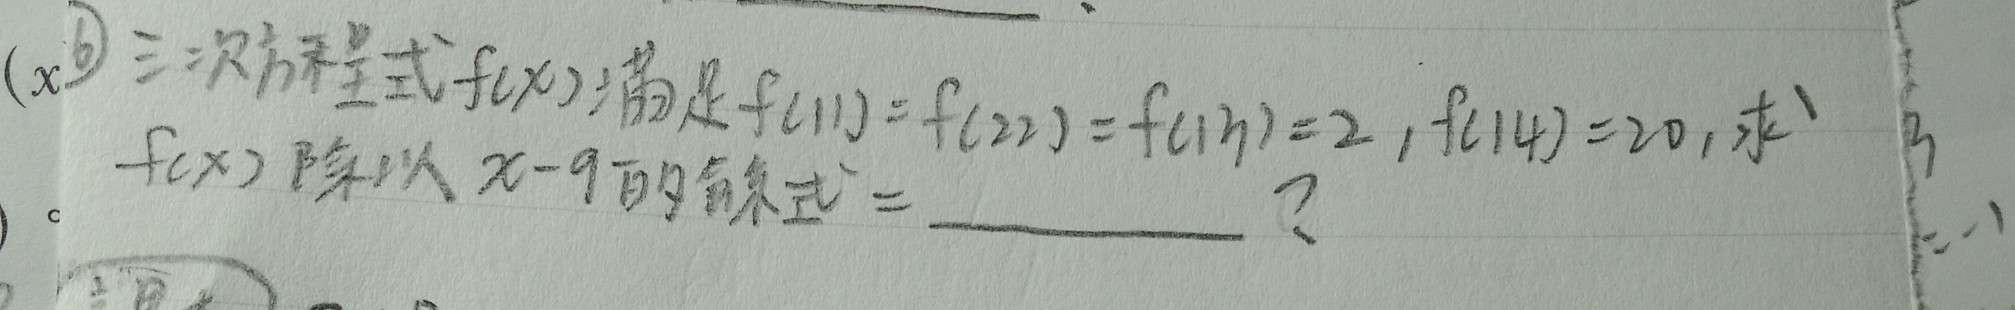 (x
⑥ 三次方程式f(x)滿足f(11)=f(22)=f(13)=2,f(14)=20,求
f(x)除以 x-9的餘式=________?